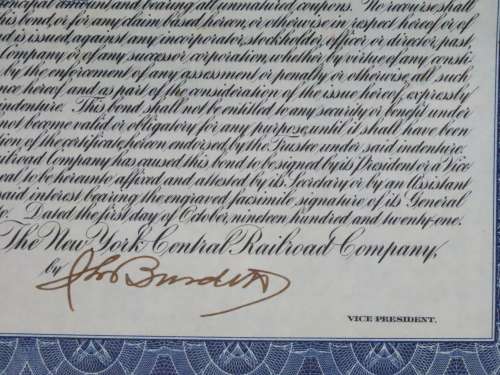 principal amount and bearing all unmatured coupons. No recourse shall
is bond, or for any claim based hereon, or otherwise in respect hereof, or of
nd is issued, against any incorporator, stockholder, officer or director, past,
Company or of any successor corporation, whether by virtue of any consti-
by the enforcement of any assessment or penalty or otherwise, all such
nce hereof and as part of the consideration of the issue hereof, expressly
indenture. This bond shall not be entitled to any security or benefit under
not become valid or obligatory for any purpose, until it shall have been
tion of the certificate hereon endorsed, by the Trustee under said indenture.
ilroad Company has caused this bond to be signed by its President or a Vice
eal to be hereunto affixed and attested by its Secretary or by an Assistant
said interest bearing the engraved facsimile signature of its General
to. Dated the first day of October, nineteen hundred and twenty-one.
The New York Central Railroad Company,
by Jno Burdett
VICE PRESIDENT.